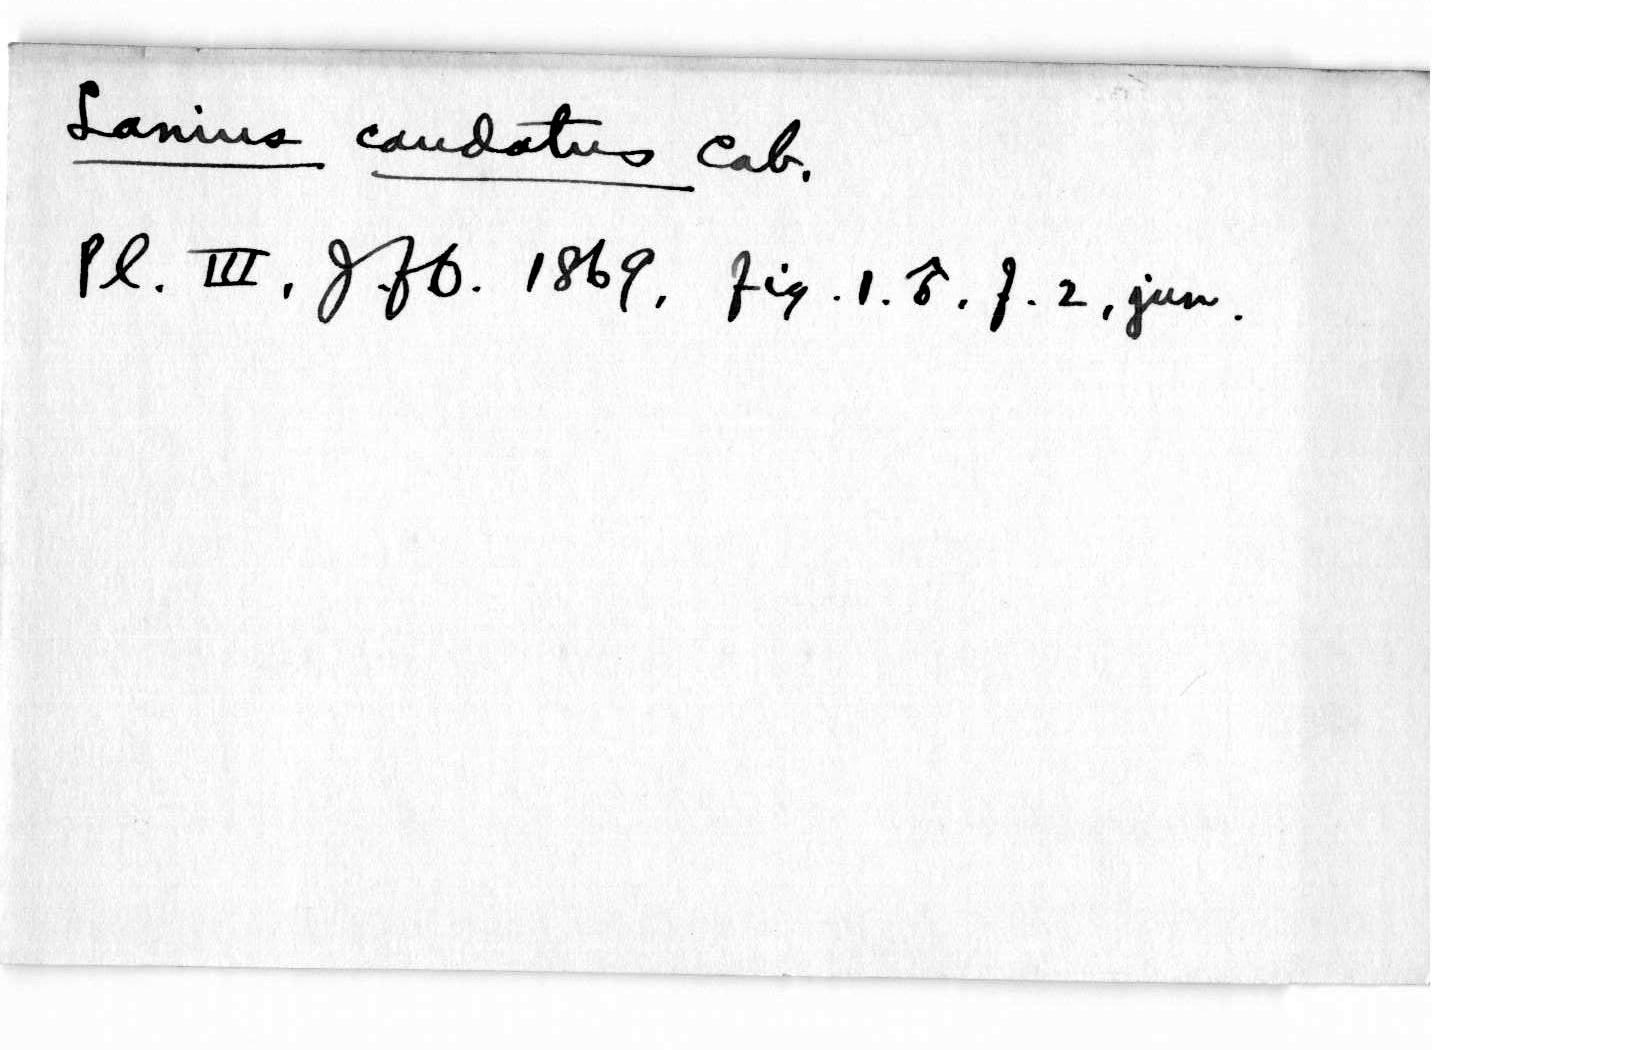 Lanius caudatus Cab.
Pl. III, J.f.O. 1869, fig. 1. ♂. f. 2, jun.